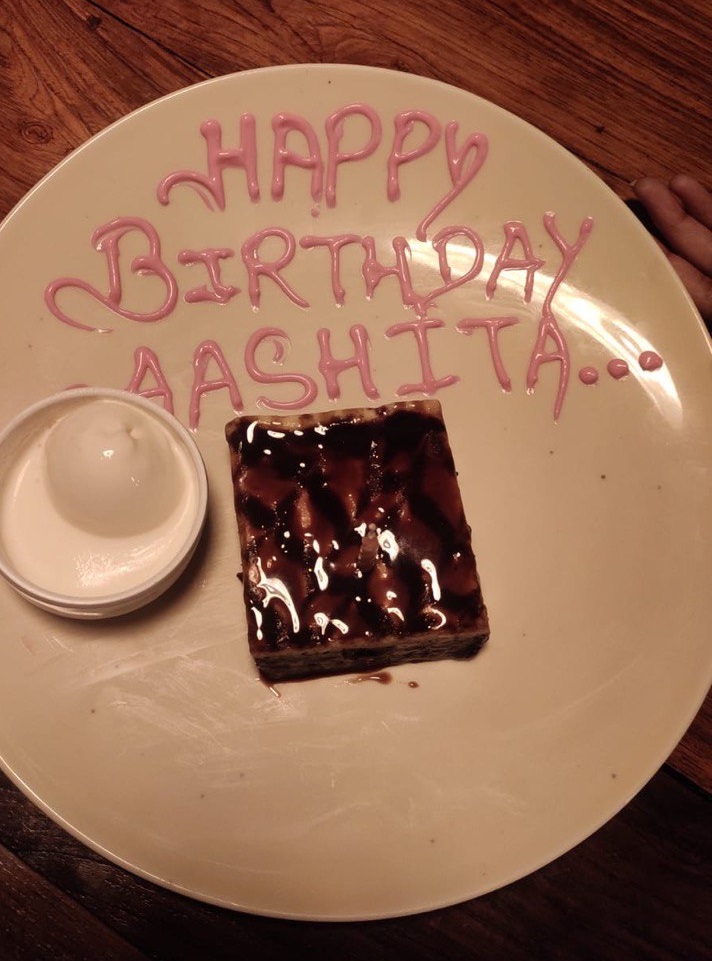 HAPPY
BIRTHDAY
AASHITA...